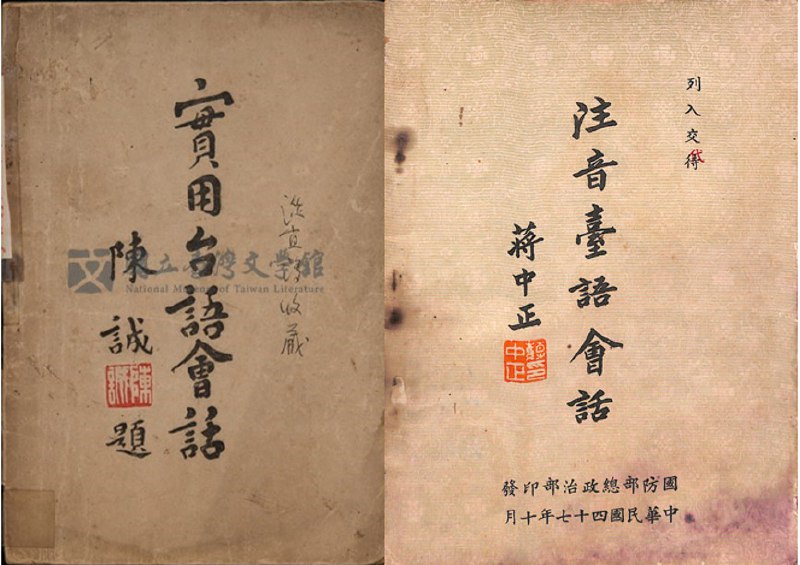 收藏
實用台語會話
陳誠題
國立臺灣文學館
National Museum of Taiwan Literature
列入交
注音臺語會話
蔣中正
國防部總政治部印發
中華民國四十七年十月